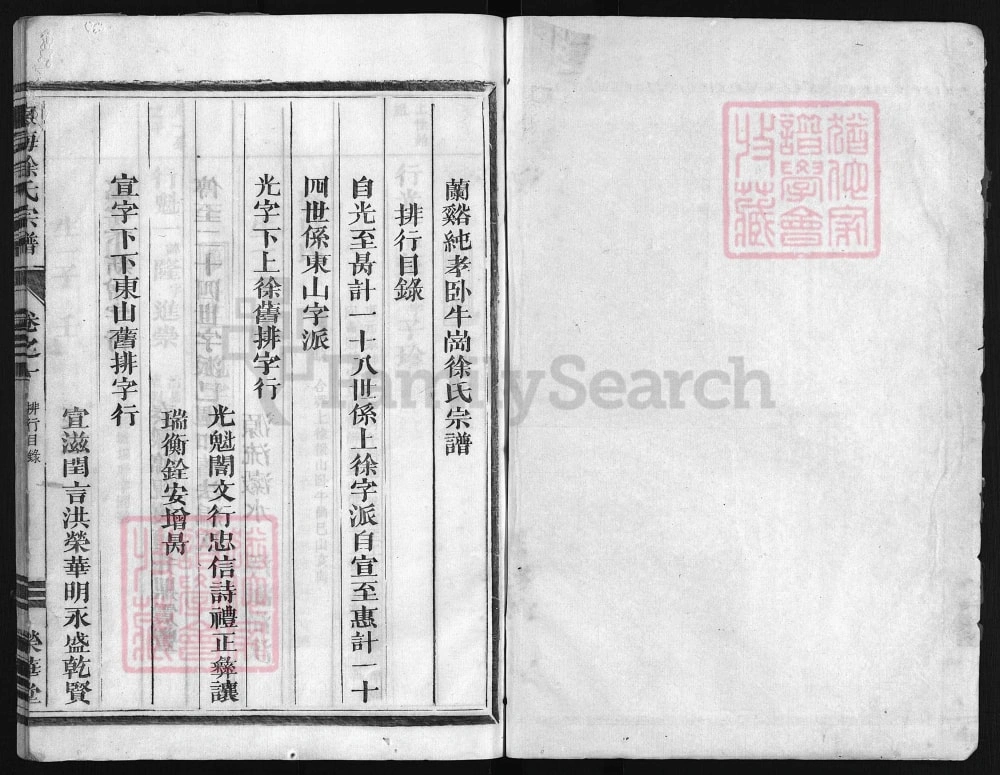 猶他家
譜學會
特藏
蘭谿純孝卧牛崗徐氏宗譜
排行目錄
自光至昺計一十八世係上徐字派自宣至惠計一十
四世係東山字派
光字下上徐舊排字行
光魁闇文行忠信詩禮正彝讓
瑞衡銓安增昺
宣字下下東山舊排字行
宣滋閏言洪榮華明永盛乾賢
東海徐氏宗譜
卷之一
排行目錄
榮華堂
FamilySearch